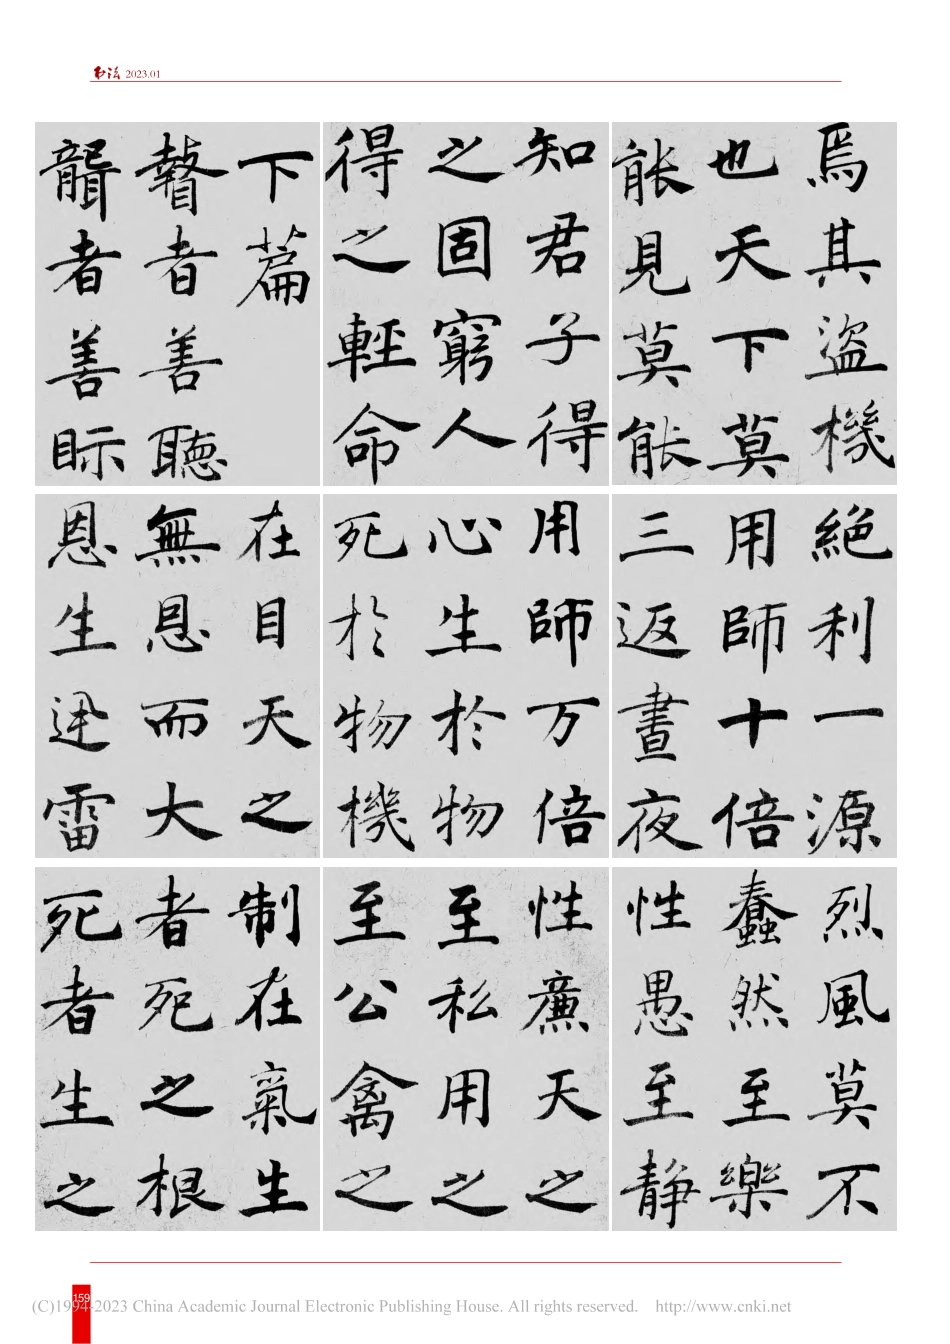 书法 2023.01
焉其盗機
也天下莫
能見莫能
知君子得
之固窮人
得之輕命
下篇
瞽者善聽
聾者善眎
絕利一源
用師十倍
三返晝夜
用師万倍
心生於物
死於物機
在目天之
無恩而大
恩生迅雷
烈風莫不
蠢然至樂
性愚至静
性廉天之
至私用之
至公禽之
制在氣生
者死之根
死者生之
159
(C)1994-2023 China Academic Journal Electronic Publishing House. All rights reserved. http://www.cnki.net